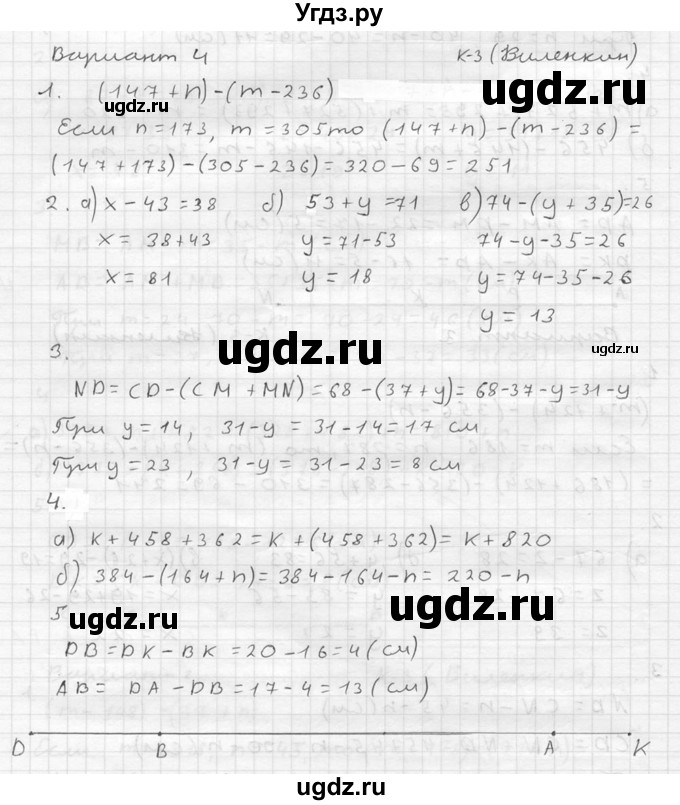 Угдз.ру
Вариант 4 К-3 (Виленкин)
1. (147+n)-(m-236)
ugdz.ru ugdz.ru
Если n=173, m=305 то (147+n)-(m-236)=
(147+173)-(305-236)=320-69=251
2. а) x-43=38 б) 53+y=71 в) 74-(y+35)=26
x= 38+43 y=71-53 74-y-35=26
x=81 y=18 y=74-35-26
y=13
3. ugdz.ru ugdz.ru
ND=CD-(CM+MN)=68-(37+y)=68-37-y=31-y
При y=14, 31-y=31-14=17 см
При y=23, 31-y=31-23=8 см
4.
а) k+458+362=k+(458+362)=k+820
б) 384-(164+n)=384-164-n=220-n
5 ugdz.ru ugdz.ru
DB=DK-BK=20-16=4(см)
AB= DA-DB=17-4=13(см)
D B A K
ugdz.ru ugdz.ru
ugdz.ru